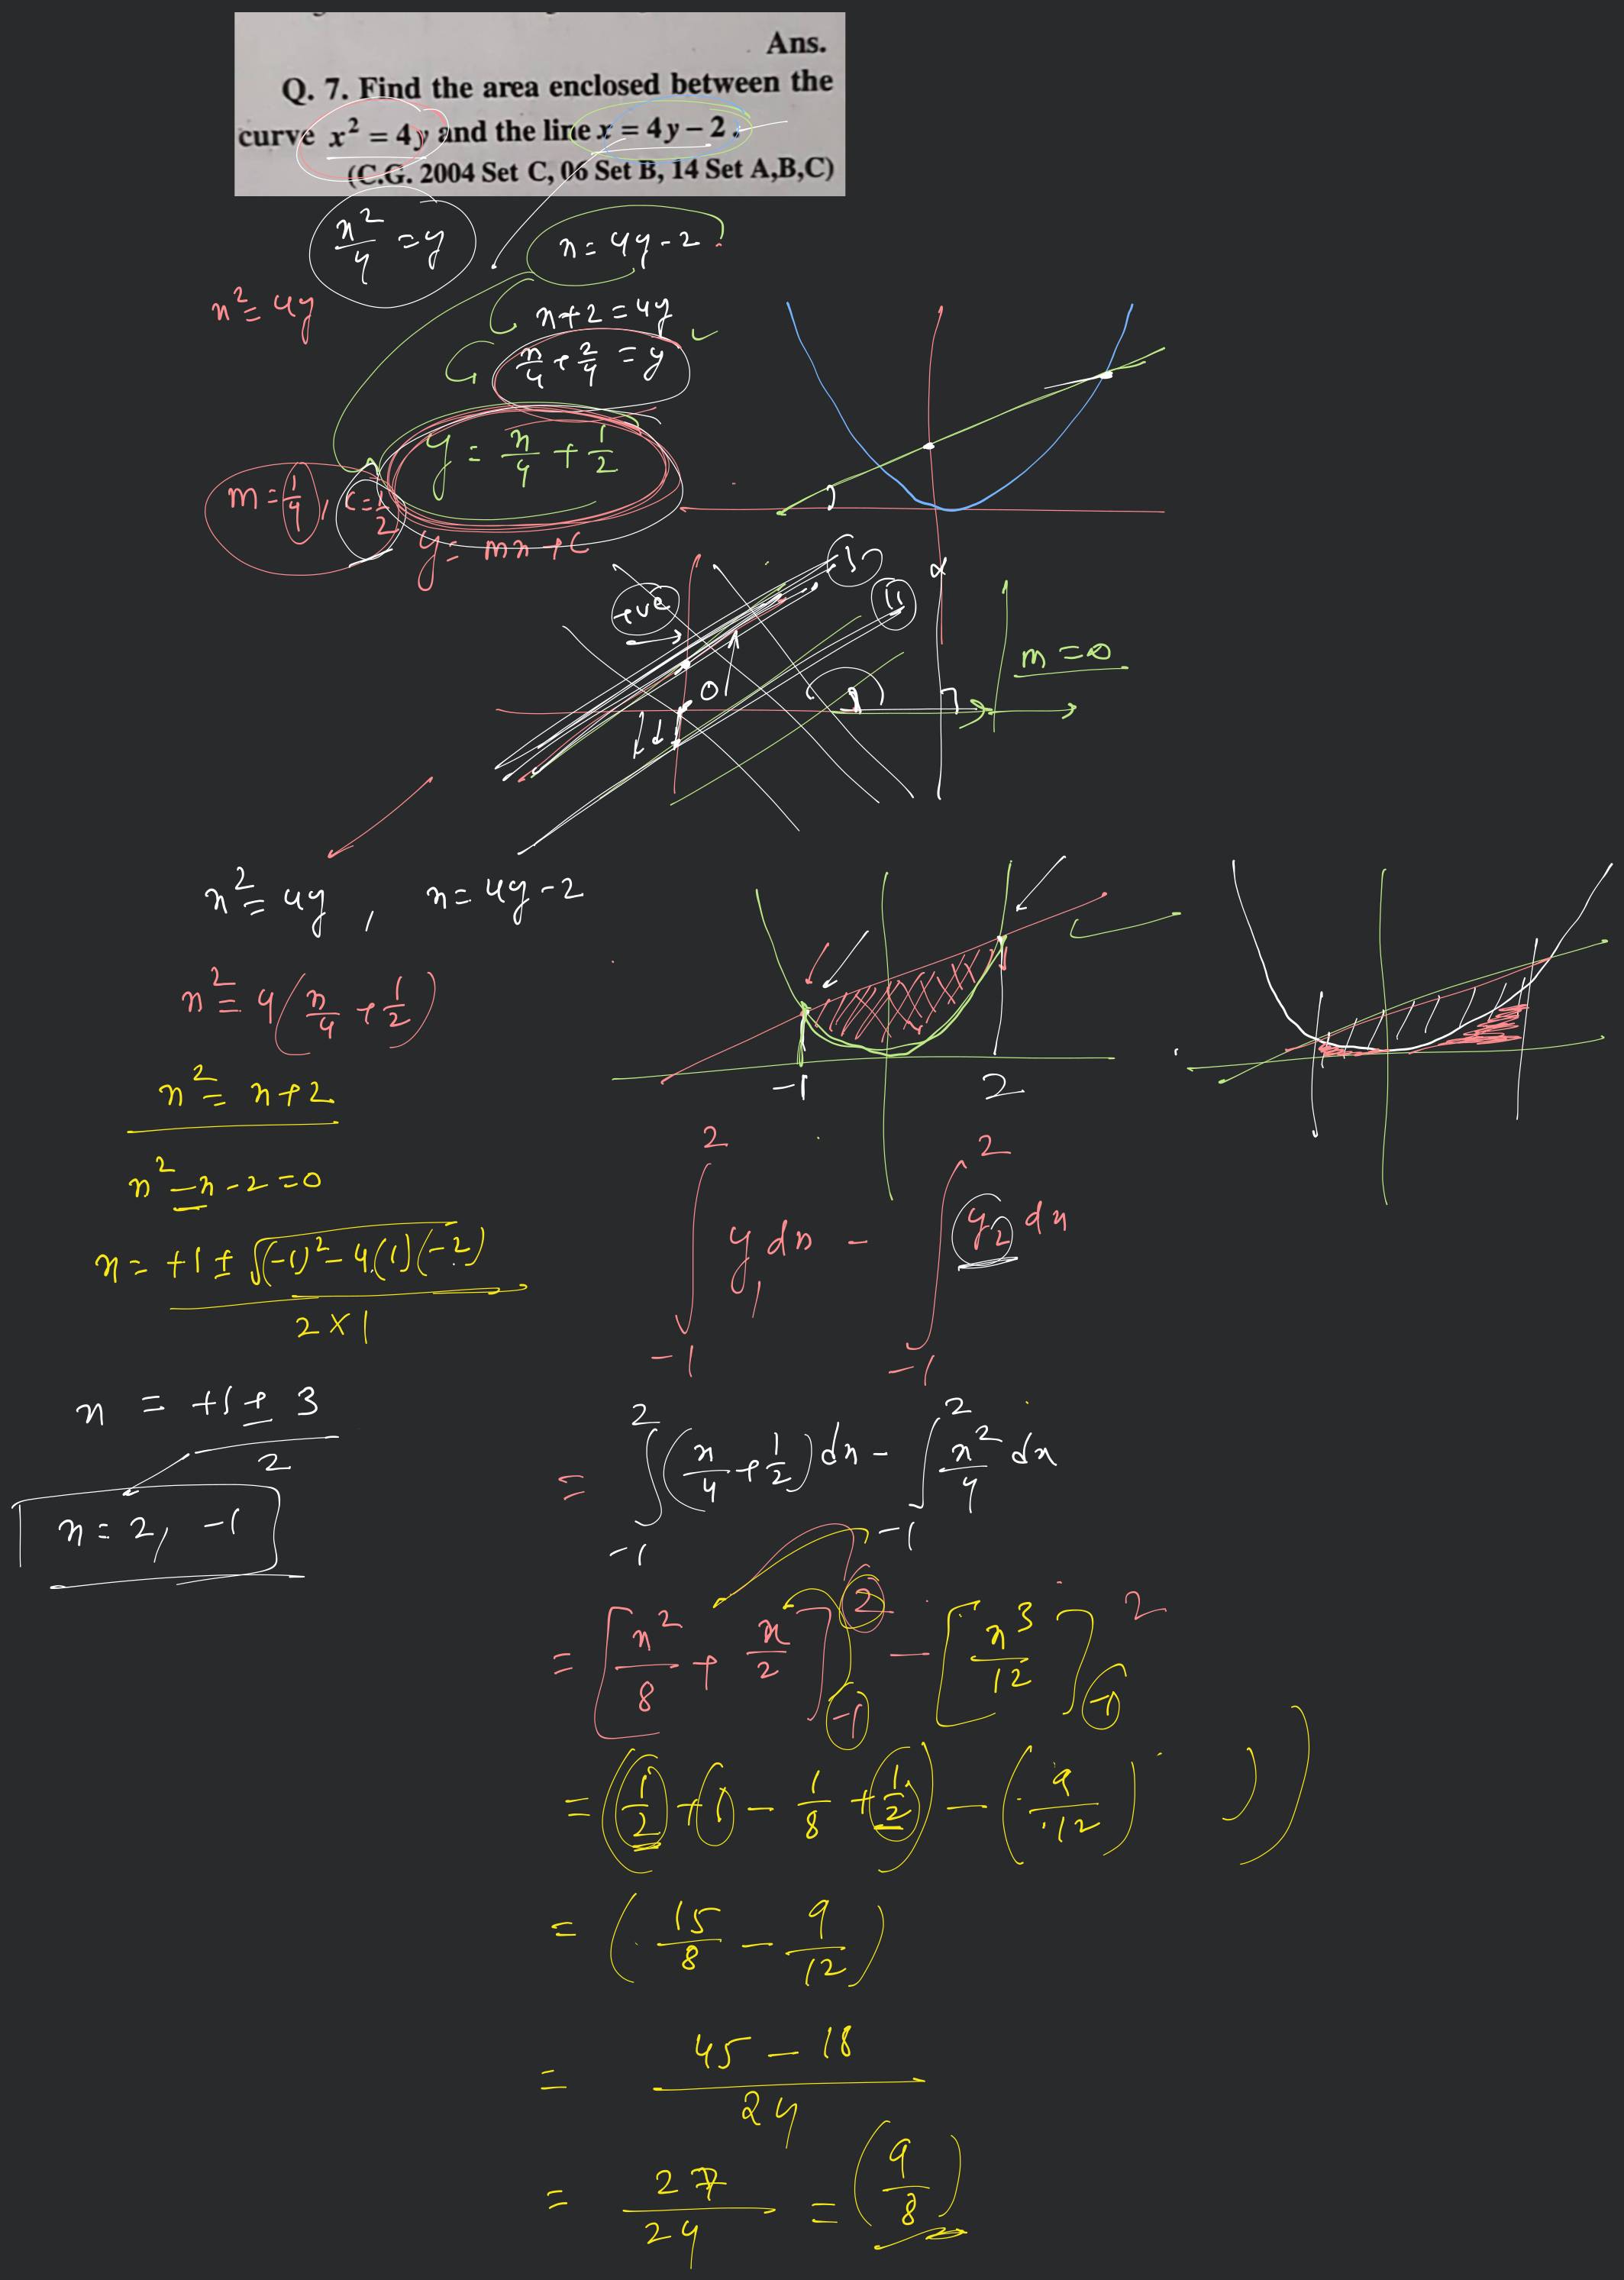 Ans.
Q. 7. Find the area enclosed between the
curve x² = 4y and the line x = 4y – 2.
(C.G. 2004 Set C, 06 Set B, 14 Set A,B,C)
x²/4 = y
x = 4y - 2
x² = 4y
x + 2 = 4y
x/4 + 2/4 = y
y = x/4 + 1/2
m = 1/4, c = 1/2
y = mx + c
+ve
m = ∞
x² = 4y, x = 4y - 2
x² = 4(x/4 + 1/2)
x² = x + 2
-1 2
x² - x - 2 = 0
x = +1 ± √(-1)² - 4(1)(-2) / 2 × 1
∫₋₁² y₁ dx - ∫₋₁² y₂ dx
x = +1 ± 3 / 2
x = 2, -1
= ∫₋₁² (x/4 + 1/2) dx - ∫₋₁² x²/4 dx
= [x²/8 + x/2]₋₁² - [x³/12]₋₁²
= (1/2 + 1 - 1/8 + 1/2) - (9/12)
= (15/8 - 9/12)
= 45 - 18 / 24
= 27/24 = (9/8)